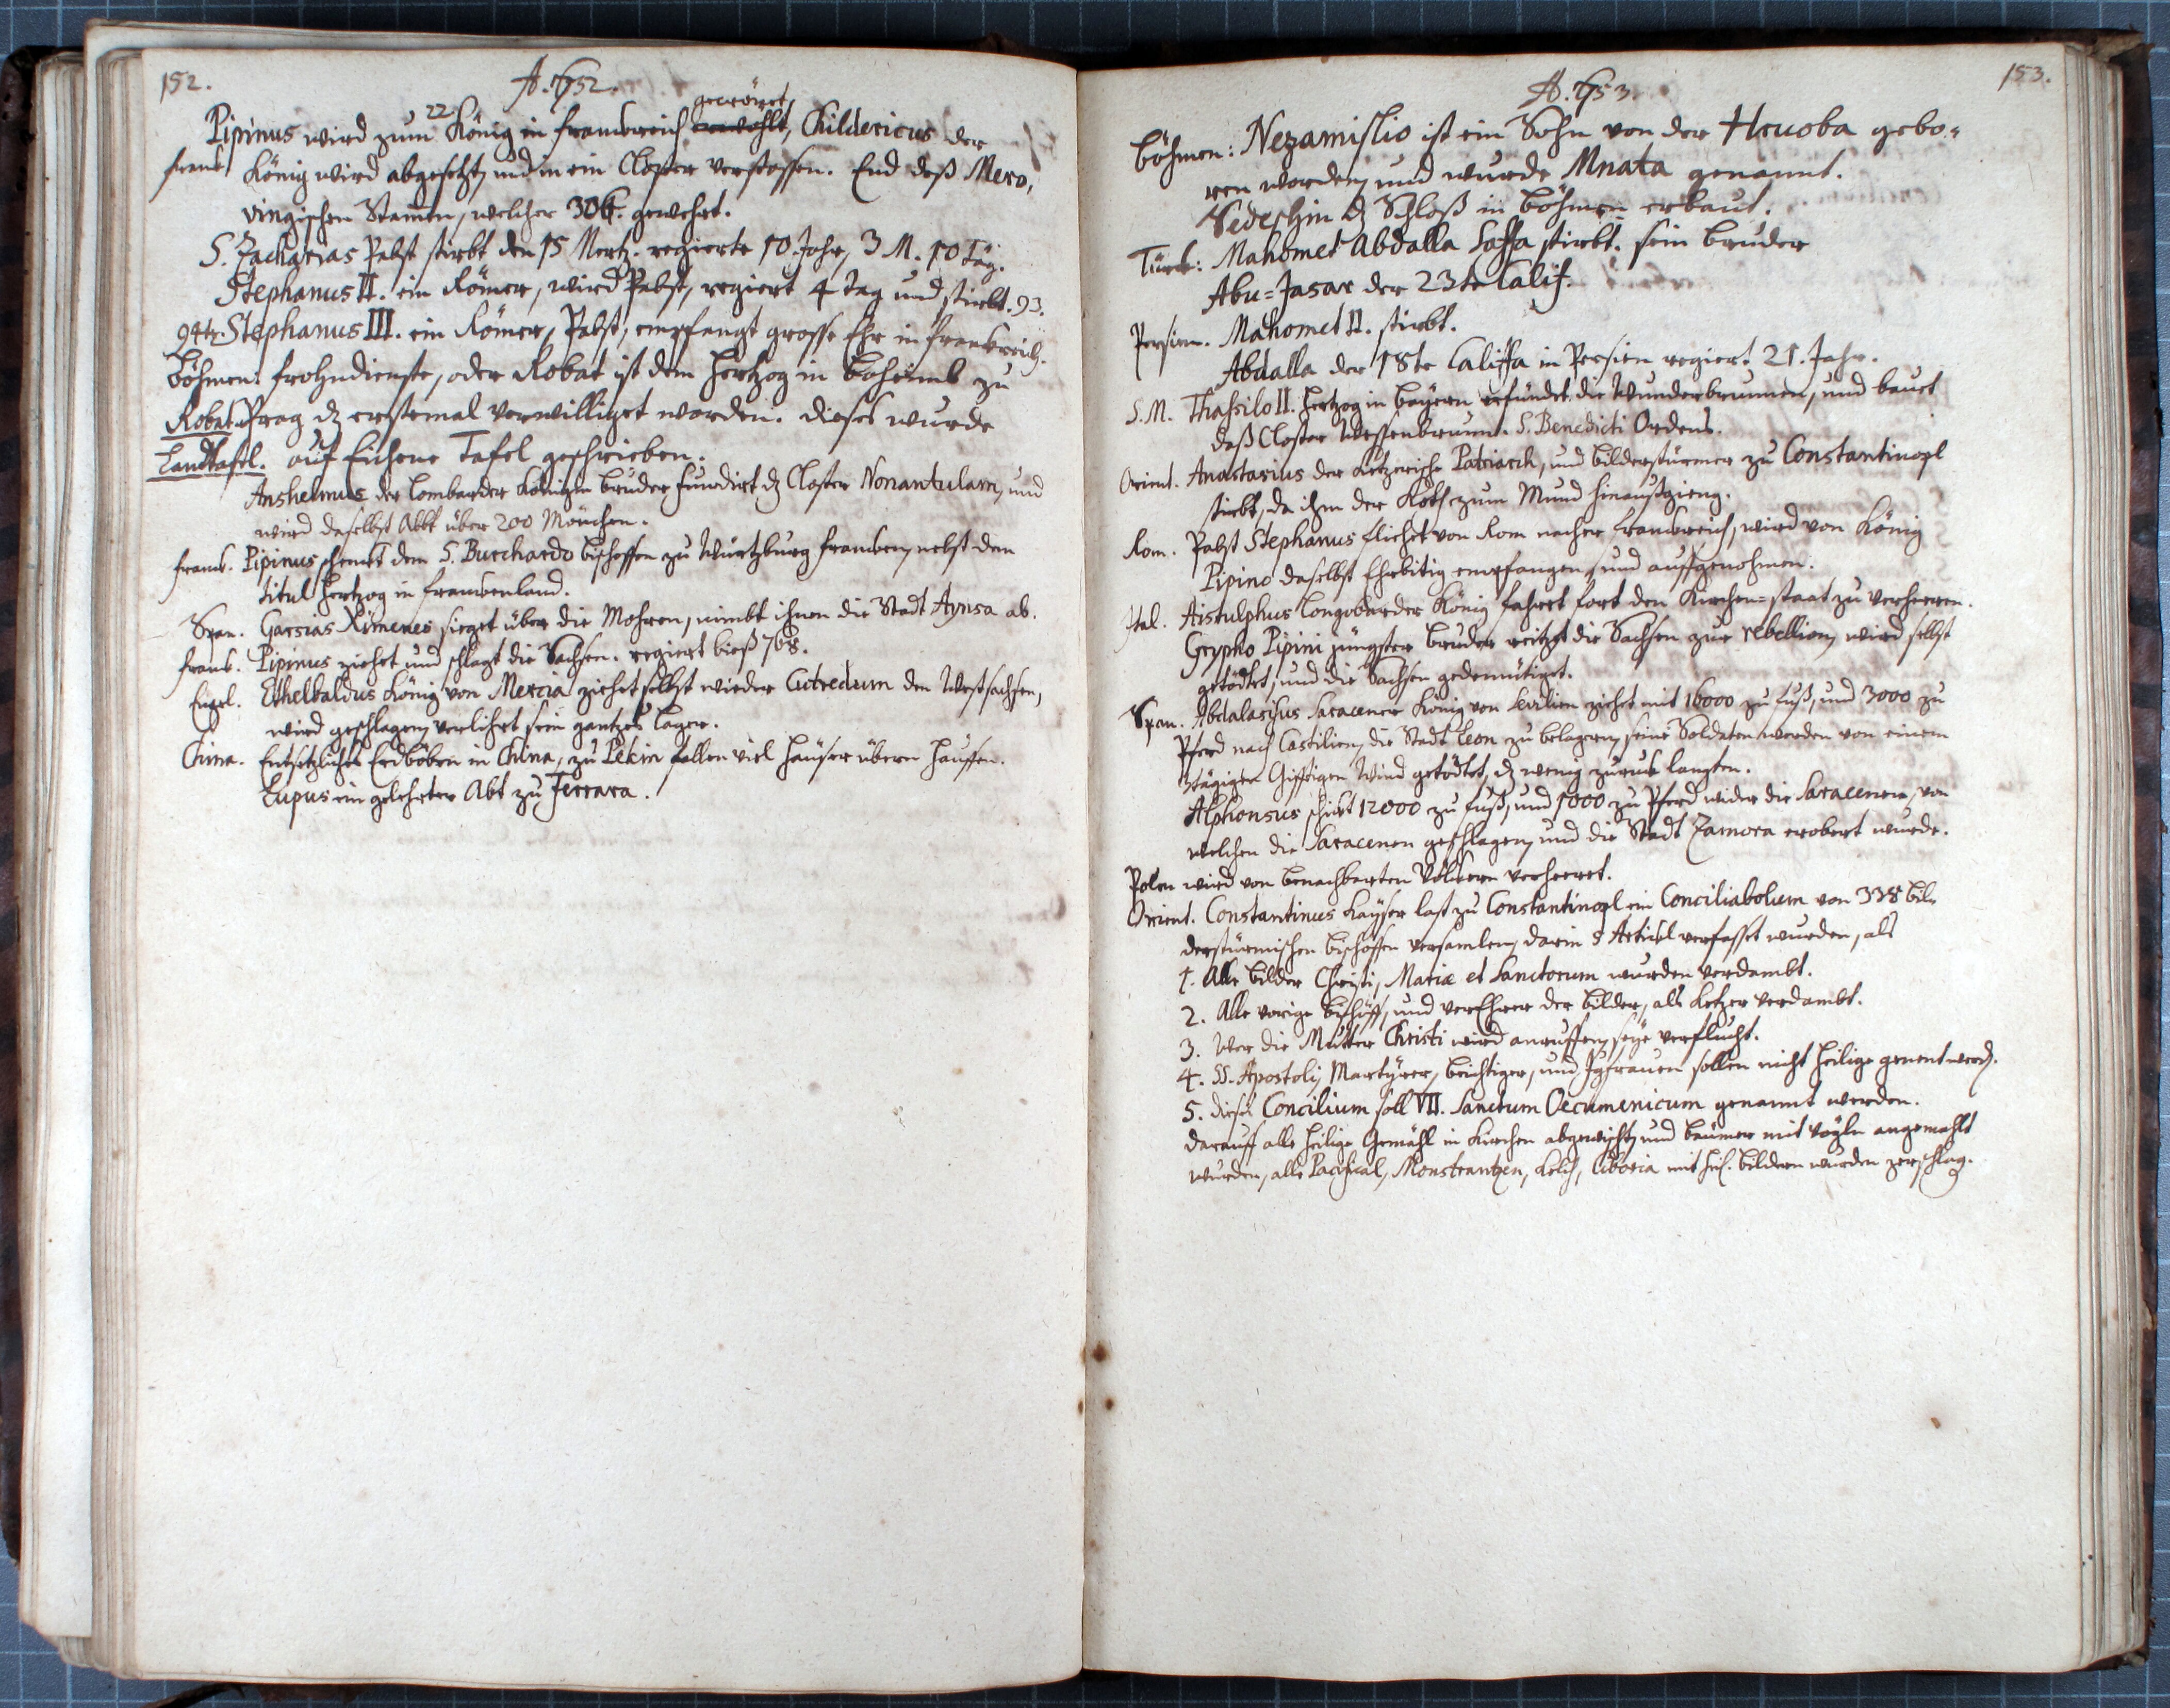 152.
A. 752.
22 gecrönet,
Pipinus wird zum König in Franckreich erwehlt, Childericus der
Franck König wird abgesetzt, und in ein Closter verstossen. End deß Mero,
vingischen Stamen, welcher 306. gewehrt.
S. Zacharias Pabst stirbt den 15 Mertz. regierte 10 Jahr, 3 M. 10 Täg.
Stephanus II. ein Römer, wird Pabst, regiert 4 Tag und stirbt. 93.
94te Stephanus III. ein Römer, Pabst, empfangt grosse Ehr in Franckreich.
Böhmen: Frohndienste, oder Robat ist dem Hertzog in Boheimb zu
Robat. Prag dz erstemal verwilliget worden. Dieses wurde
Landtafel. auf Eichene Tafel geschrieben.
Anshelmus der Lombarder Königin Bruder fundirt dz Closter Nonantulam, und
wird daselbst Abbt über 200 Mönchen.
Franck. Pipinus schenckt dem S. Burchardo Bischoffen zu Würtzburg Francken, nebst dem
titul Hertzog in Franckenland.
Span. Garsias Ximenes sieget über die Mohren, nimbt ihnen die Stadt Aynsa ab.
Franck. Pipinus ziehet und schlagt die Sachsen. regiert bieß 768.
Engel. Ethelbaldus König von Mercia ziehet selbst wieder Cutredum den Westsachsen,
wird geschlagen, verlihrt sein gantzes Lager.
China. Entsetzliches Erdböben in China, zu Pekin fallen viel Häuser übern Hauffen.
Lupus ein gelehrter Abt zu Ferrara.
153.
A. 753.
Böhmen: Nezamislio ist ein Sohn von der Hruoba gebo„
ren worden, und wurde Mnata genannt.
Sedeschin dz Schloß in Böhmen erbaut.
Türck: Mahomet Abdalla Saffa stirbt. sein Bruder
Abu=Jasar der 23te Calif.
Persien. Mahomet II. stirbt.
Abdalla der 18te Califfa in Persien regiert 21. Jahr.
S. M. Thassilo II. Hertzog in Bayern erfündet die Wunderbrunnen, und bauet
daß Closter Wessenbrunn. S. Benedicti Ordens.
Orient. Anastasius der Ketzerische Patriarch, und Bilderstürmer zu Constantinopl
stirbt, da ihm der Koth zum Mund hinaußgieng.
Rom. Pabst Stephanus fliehet von Rom nacher Franckreich, wird von König
Pipino daselbst Ehrbitig empfangen, und auffgenohmen.
Ital. Aistulphus Longobarder König fahret fort den Kirchen=staat zu verheeren.
Grypho Pipini jüngster Bruder reitzet die Sachsen zur rebellion, wird selbst
getödtet, und die Sachsen gedemütiget.
Span. Abdalasisus Saracener König von Sevilien ziehet mit 16000 zu Fuß, und 3000 zu
Pferd nach Castilien, die Stadt Leon zu belagern, seine Soldaten werden von einem
3tägigen Gifftigen Wind getödtet, dz wenig zuruck langten.
Alphonsus schickt 12000 zu Fuß, und 1000 zu Pferd wider die Saracenen, von
welchen die Saracenen geschlagen, und die Stadt Zamora erobert wurde.
Polen wird von benachbarten Völckern verheeret.
Orient. Constantinus Kayser last zu Constantinopl ein Conciliabolum von 338 Bil„
derstürmischen Bischoffen versamlen, darin 5 Articul verfasset wurden, als
1. Alle Bilder Christi, Mariæ et Sanctorum wurden verdambt.
2. Alle vorige Bischöff, und verEhrer der Bilder, als Ketzer verdambt.
3. Wer die Mutter Christi wird anruffen, seye verflucht.
4. SS. Apostoli, Martyrer, Beichtiger, und Jgfrauen sollen nicht Heilige genent werd.
5. dieses Concilium soll VII. Sanctum Oecumenicum genannt werden.
darauff alle Heilige Gemähl in Kirchen abgewischt, und Bäumer mit Vögln angemahlt
wurden, alle Pacifical, Monstrantzen, Kelch, Ciboria mit Heil. Bildern wurden zerschlag.